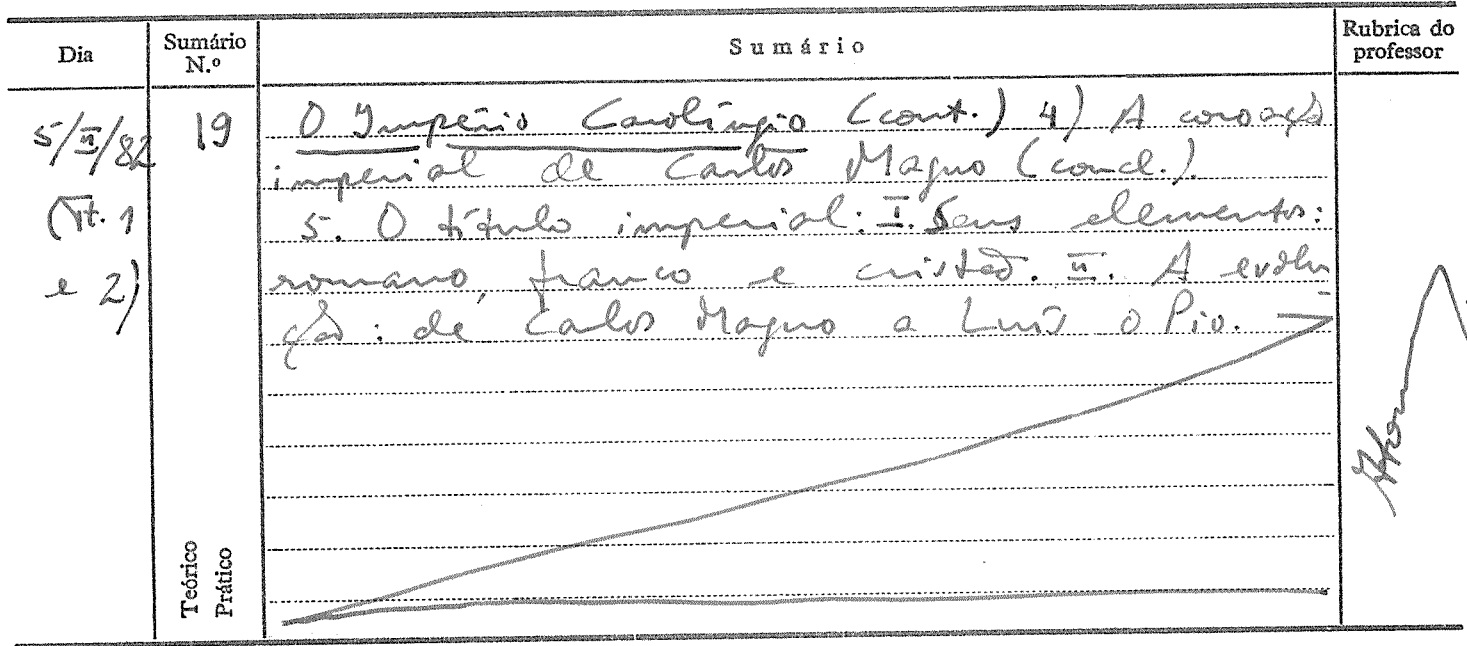 Dia
Sumário N.º
Sumário
Rubrica do professor
5/II/82
(Tt. 1
e 2)
19
O Império Carolíngio (cont.) 4) A coroação
imperial de Carlos Magno (concl.).
5. O título imperial: I. Seus elementos:
romano, franco e cristão. II. A evolu
ção: de Carlos Magno a Luís o Pio.
Teórico
Prático